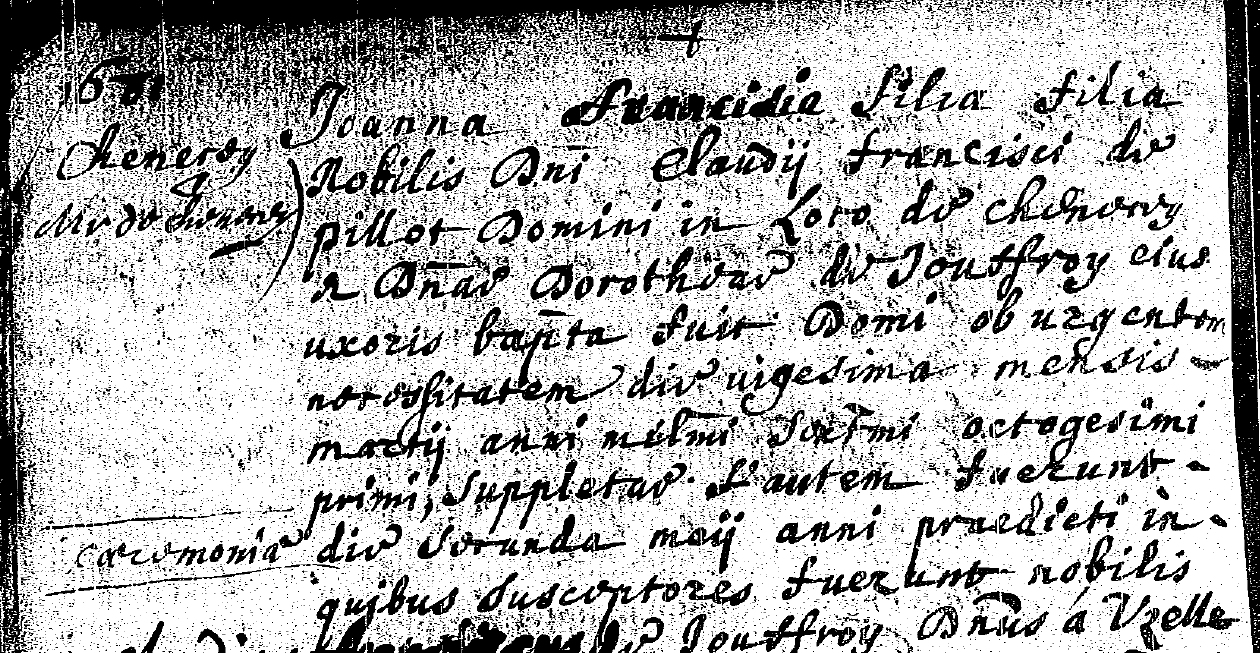 Chenerey
Mr de Chenerey
Joanna Francisca filia filia
Nobilis Dni Claudij francisci de
pillot Domini in Loco de chenerey
& Dnae Dorotheae de Jouffroy eius
uxoris bapta fuit Domi ob urgentem
necessitatem die vigesima mensis
martij anni millmi sextmi octogesimi
primi, suppletae autem fuerunt
caeremoniae die secunda maij anni praedicti in
quibus susceptores fuerunt nobilis
de Jouffroy Dnus á Uzelle